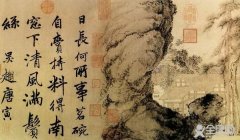 日長何所事茗碗
自賫持料得南
窗下清風滿鬢
絲 吳趨唐寅